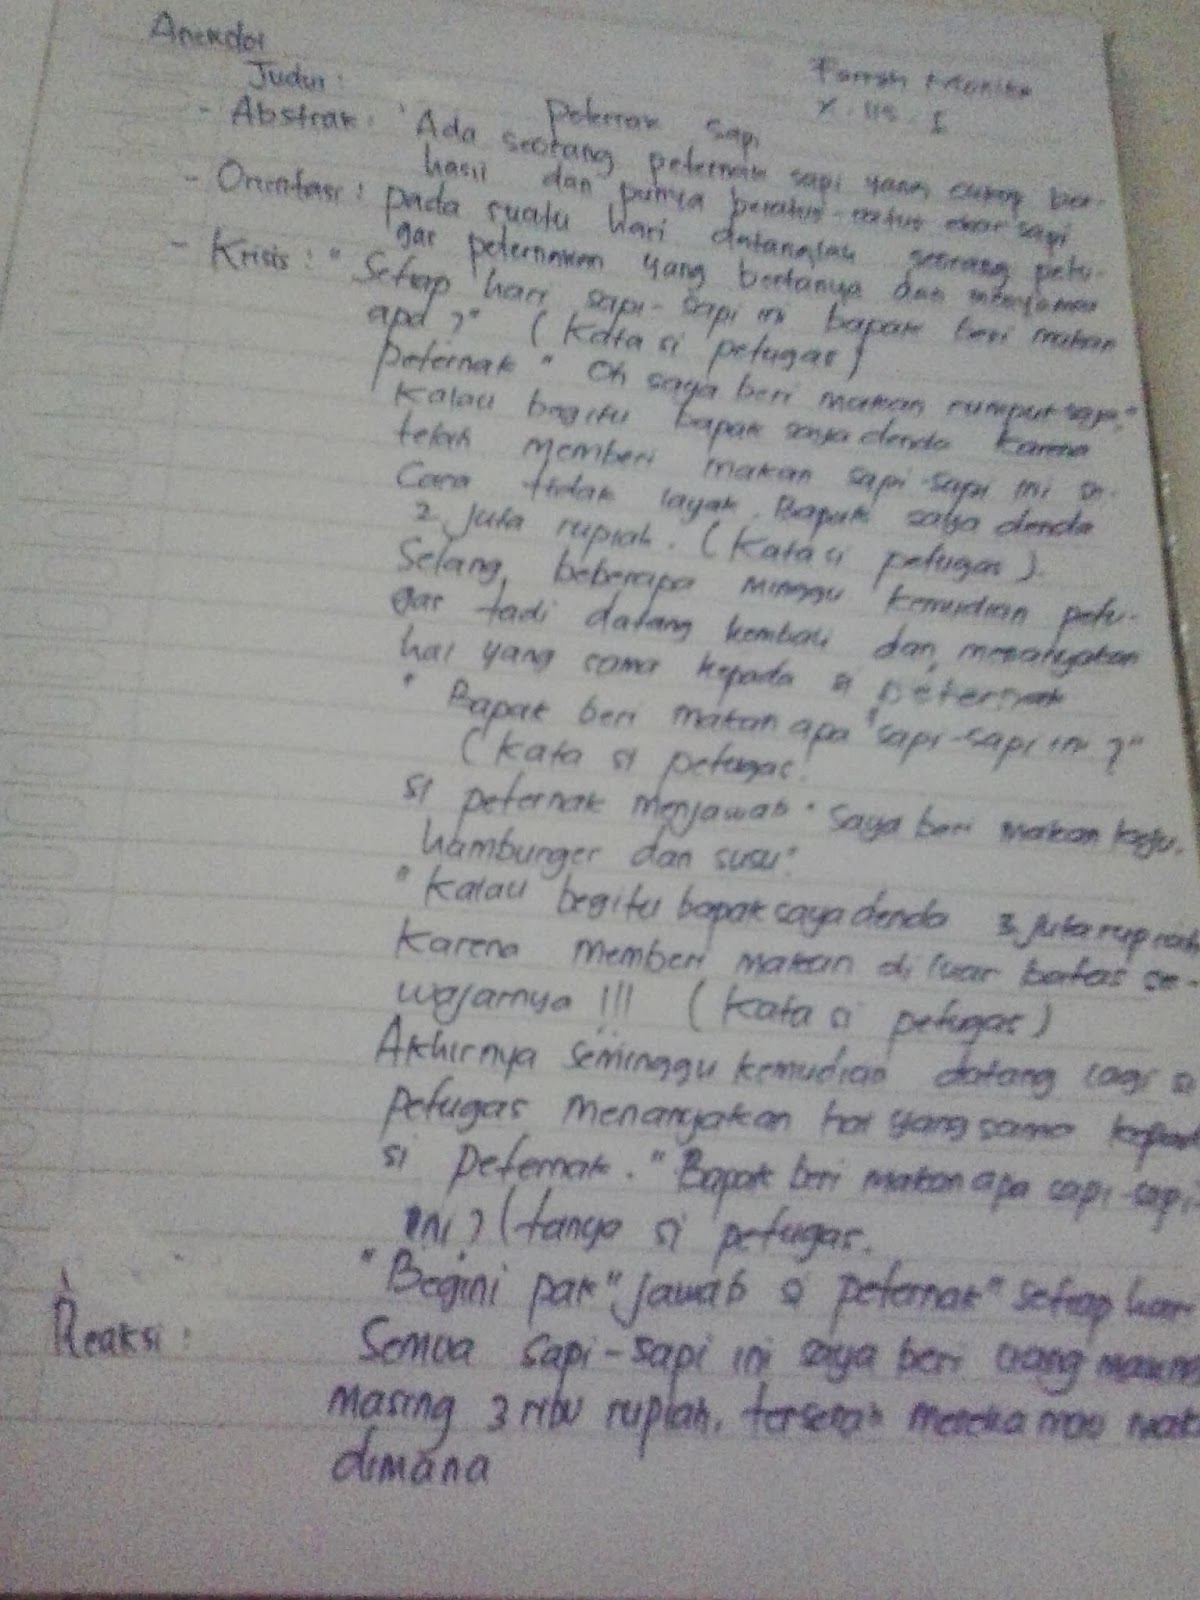 Anekdot
Judul :
Peternak sapi
X. IIS. I
- Abstrak : "Ada seorang peternak sapi yang cukup ber-
hasil dan punya beratus-ratus ekor sapi
- Orientasi : pada suatu hari datanglah seorang petu-
gas peternakan yang bertanya dan
- Krisis : " Setiap hari sapi-sapi ini bapak beri makan
apa ?" (Kata si petugas)
peternak " Oh saya beri makan rumput saja,"
Kalau begitu bapak saya denda karena
telah memberi makan sapi-sapi ini se-
Cara tidak layak. Bapak saya denda
2 juta rupiah. (Kata si petugas).
Selang, beberapa minggu kemudian petu-
gas tadi datang kembali dan, menanyakan
hal yang sama kepada si peternak
" Bapak beri makan apa "sapi-sapi ini ?"
(Kata si petugas.
si peternak menjawab " saya beri makan keju,
hamburger dan susu".
" Kalau begitu bapak saya denda 3 juta rupiah
Karena memberi makan di luar batas se-
wajarnya !!! (Kata si petugas)
Akhirnya seminggu kemudian datang lagi si
petugas menanyakan hal yang sama kepad
si peternak. "Bapak beri makan apa sapi-sapi
ini ? (tanya si petugas.
"Begini pak" jawab si peternak" setiap hari
Reaksi : Semua sapi-sapi ini saya beri uang masing
masing 3 ribu rupiah, terserah mereka mau mak
dimana